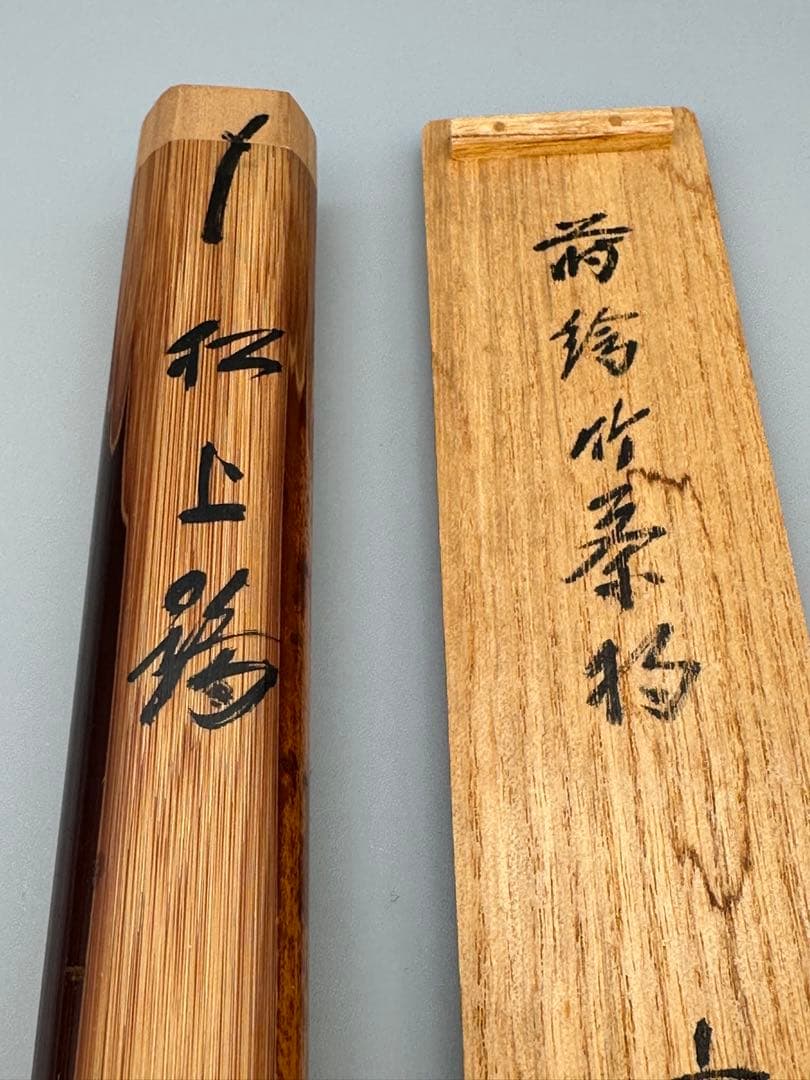 蒔絵竹茶杓
松上鶴